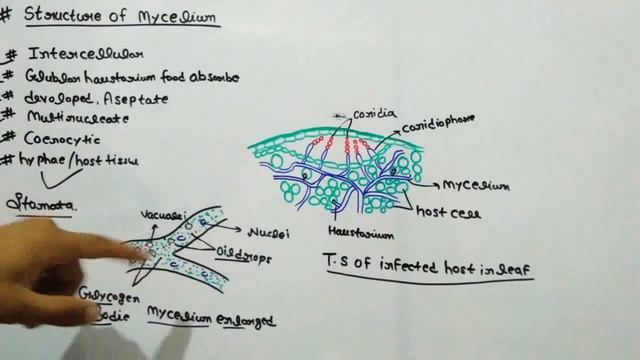 # Structure of Mycelium
# Intercellular
# Glubular haustorium food absorbe
# devoloped, Aseptate
# Multinucleate
# Coenocytic
# hyphae/host tissue
Stomata
Vacuolei
Nuclei
Oildrops
Glycogen
Bodie
Mycelium enlarged
conidia
conidiophore
Mycelium
host cell
Haustorium
T.S of infected host in leaf